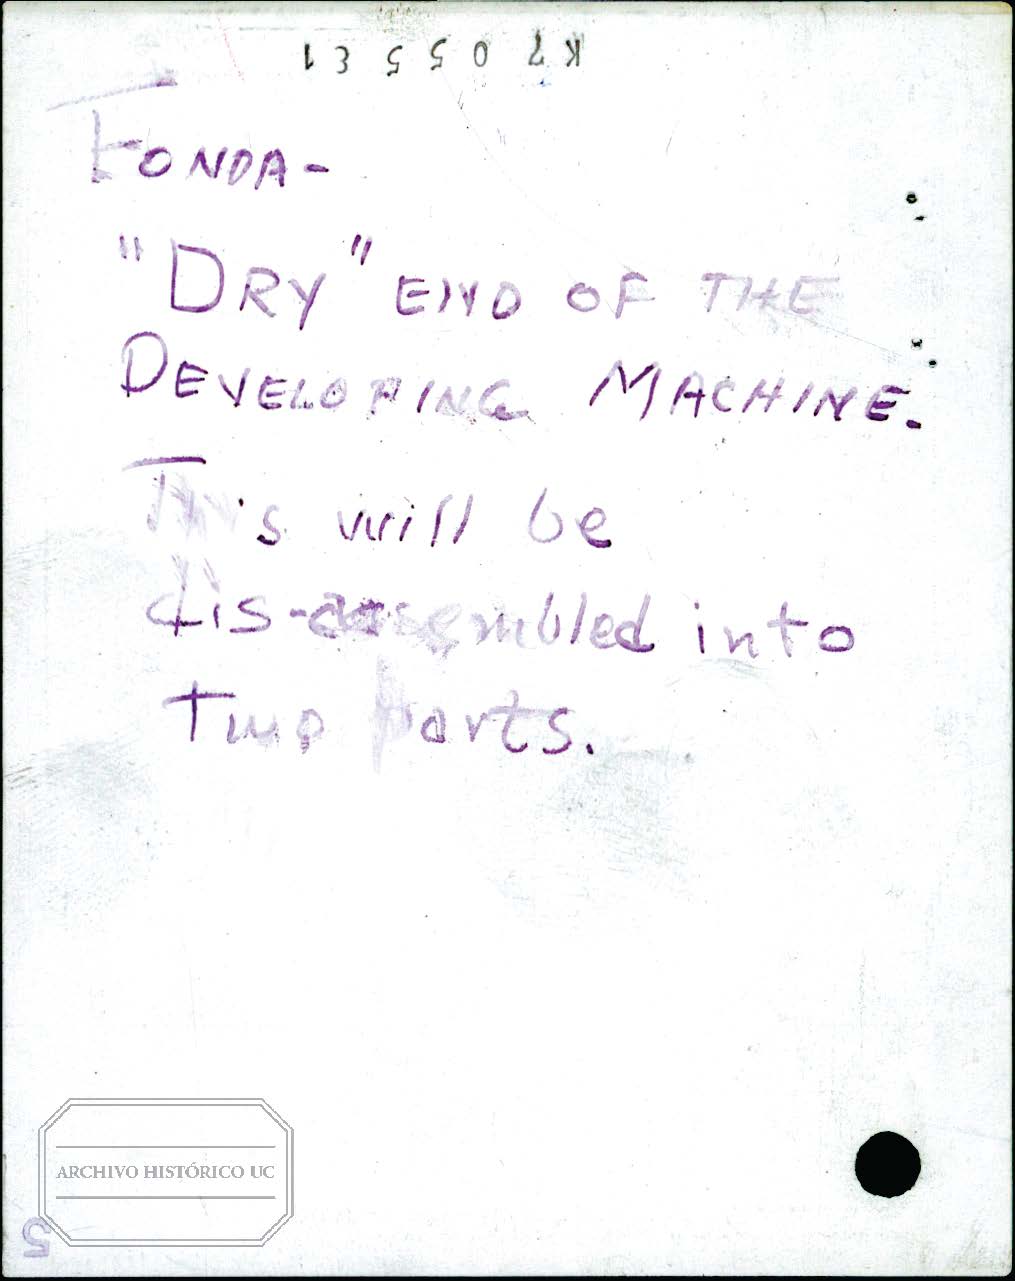 FONDA-
"DRY" END OF THE
DEVELOPING MACHINE.
This will be
dis-assembled into
Two parts.
ARCHIVO HISTÓRICO UC
5